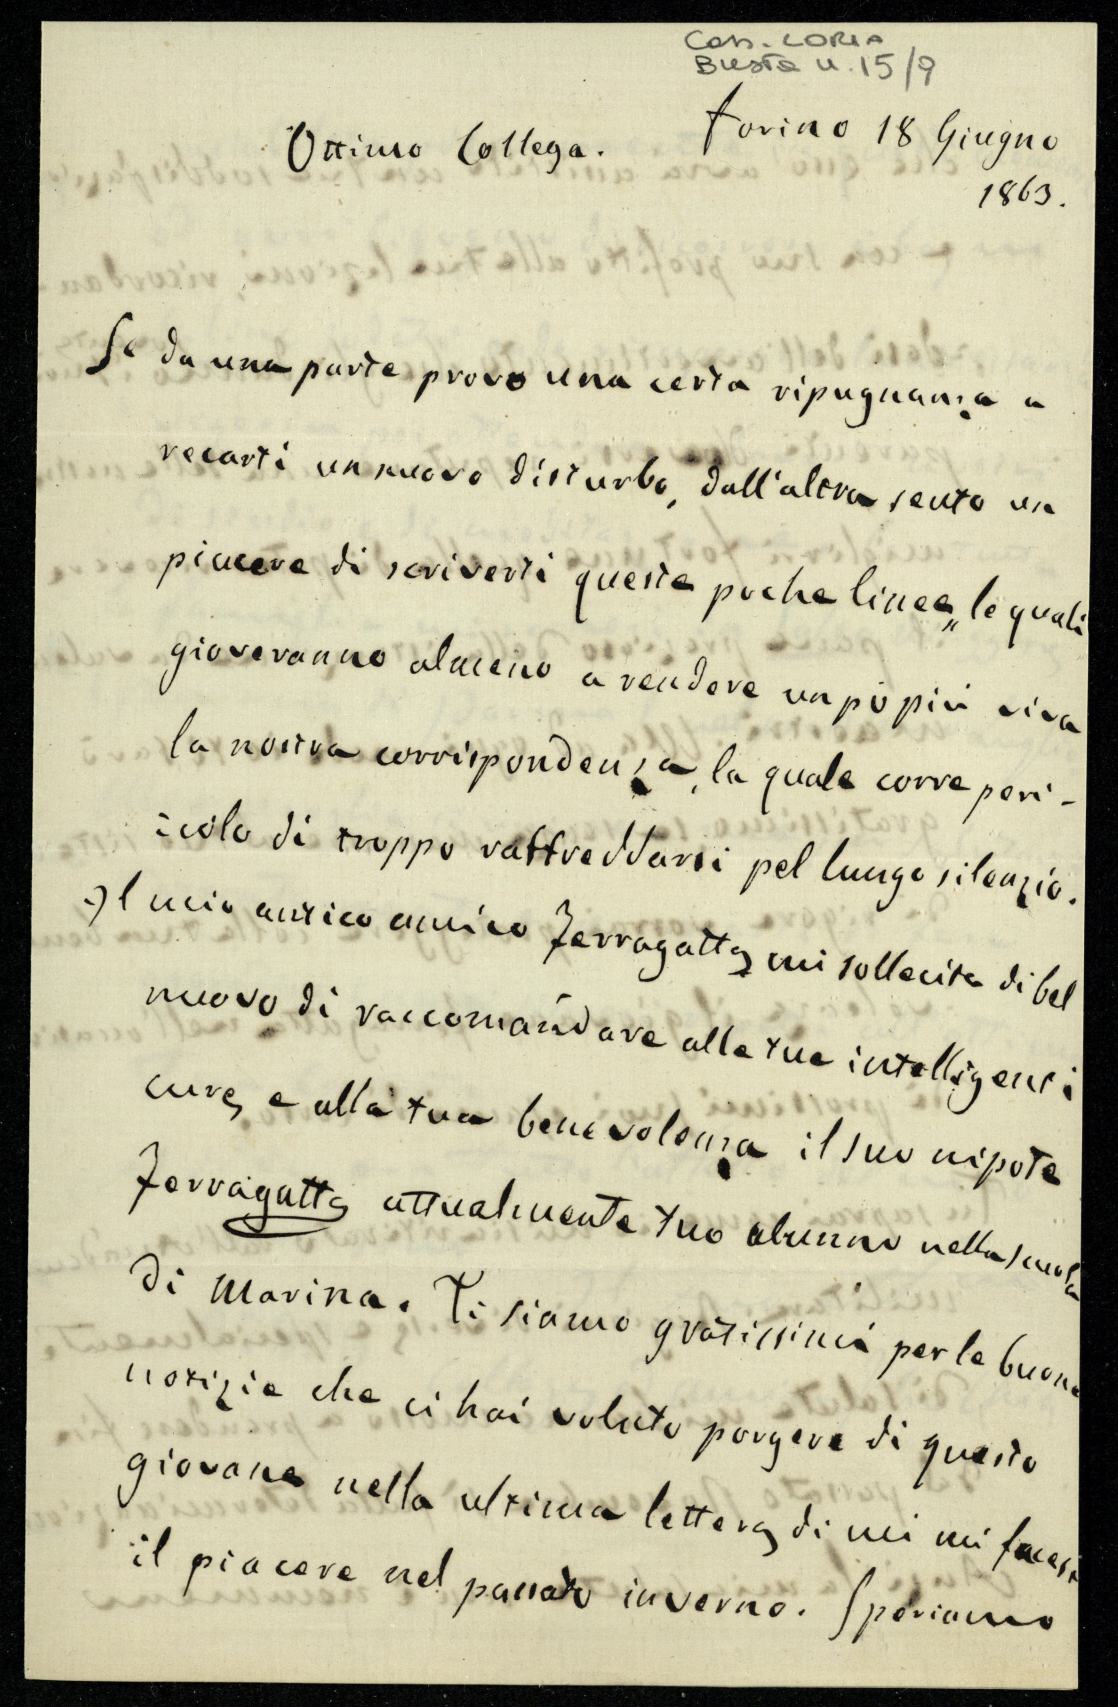 Cass. LORIA
Busta n. 15/9
Torino 18 Giugno
1863.
Ottimo Collega.
Se da una parte provo una certa ripugnanza a
recarti un nuovo disturbo, dall'altra sento un
piacere di scriverti queste poche linee, le quali
gioveranno almeno a rendere un pò più viva
la nostra corrispondenza, la quale corre peri-
colo di troppo raffreddarsi pel lungo silenzio.
Il mio antico amico Ferragatta mi sollecita di bel
nuovo di raccomandare alle tue intelligenti
cure, e alla tua benevolenza il suo nipote
Ferragatta attualmente tuo alunno nella scuola
di Marina. Ti siamo gratissimi per le buone
notizie che ci hai voluto porgere di questo
giovane nella ultima lettera, di cui mi facesti
il piacere nel passato inverno. Speriamo